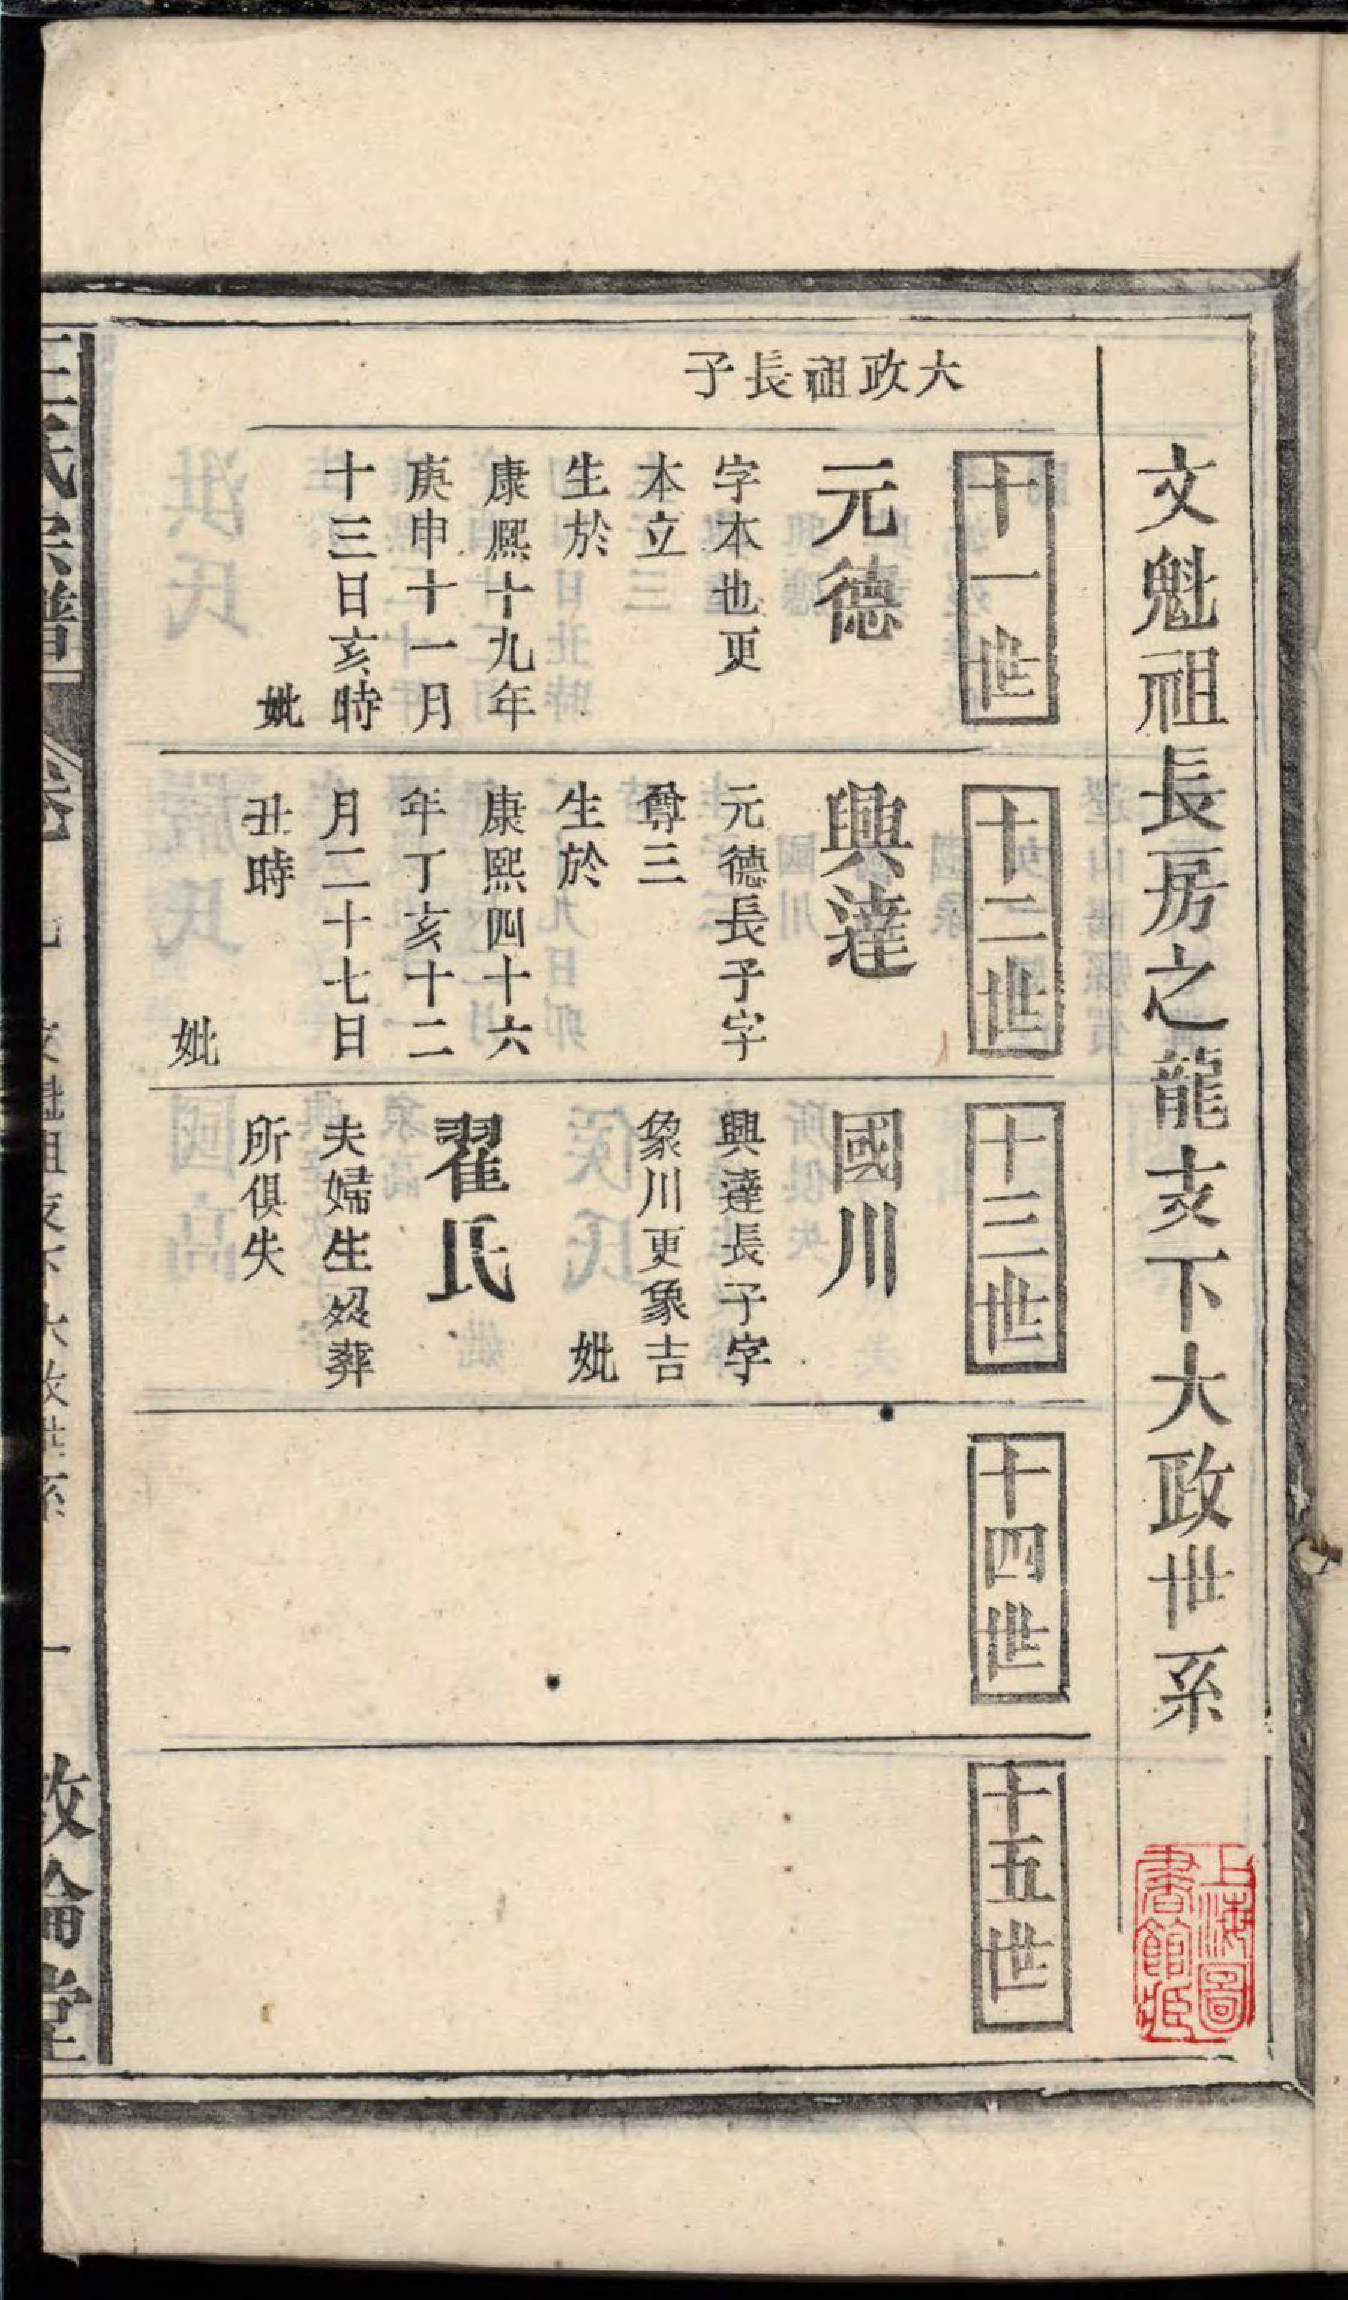 文魁祖長房之龍支下大政世系
大政祖長子
十一世
元德
字本也更
本立
生於
康熙十九年
庚申十一月
十三日亥時
妣
十二世
興達
元德長子字
尊三
生於
康熙四十六
年丁亥十二
月二十七日
丑時
妣
十三世
國川
興達長子字
象川更象吉
妣
翟氏
夫婦生歿葬
所俱失
十四世
十五世
上海圖
書館藏